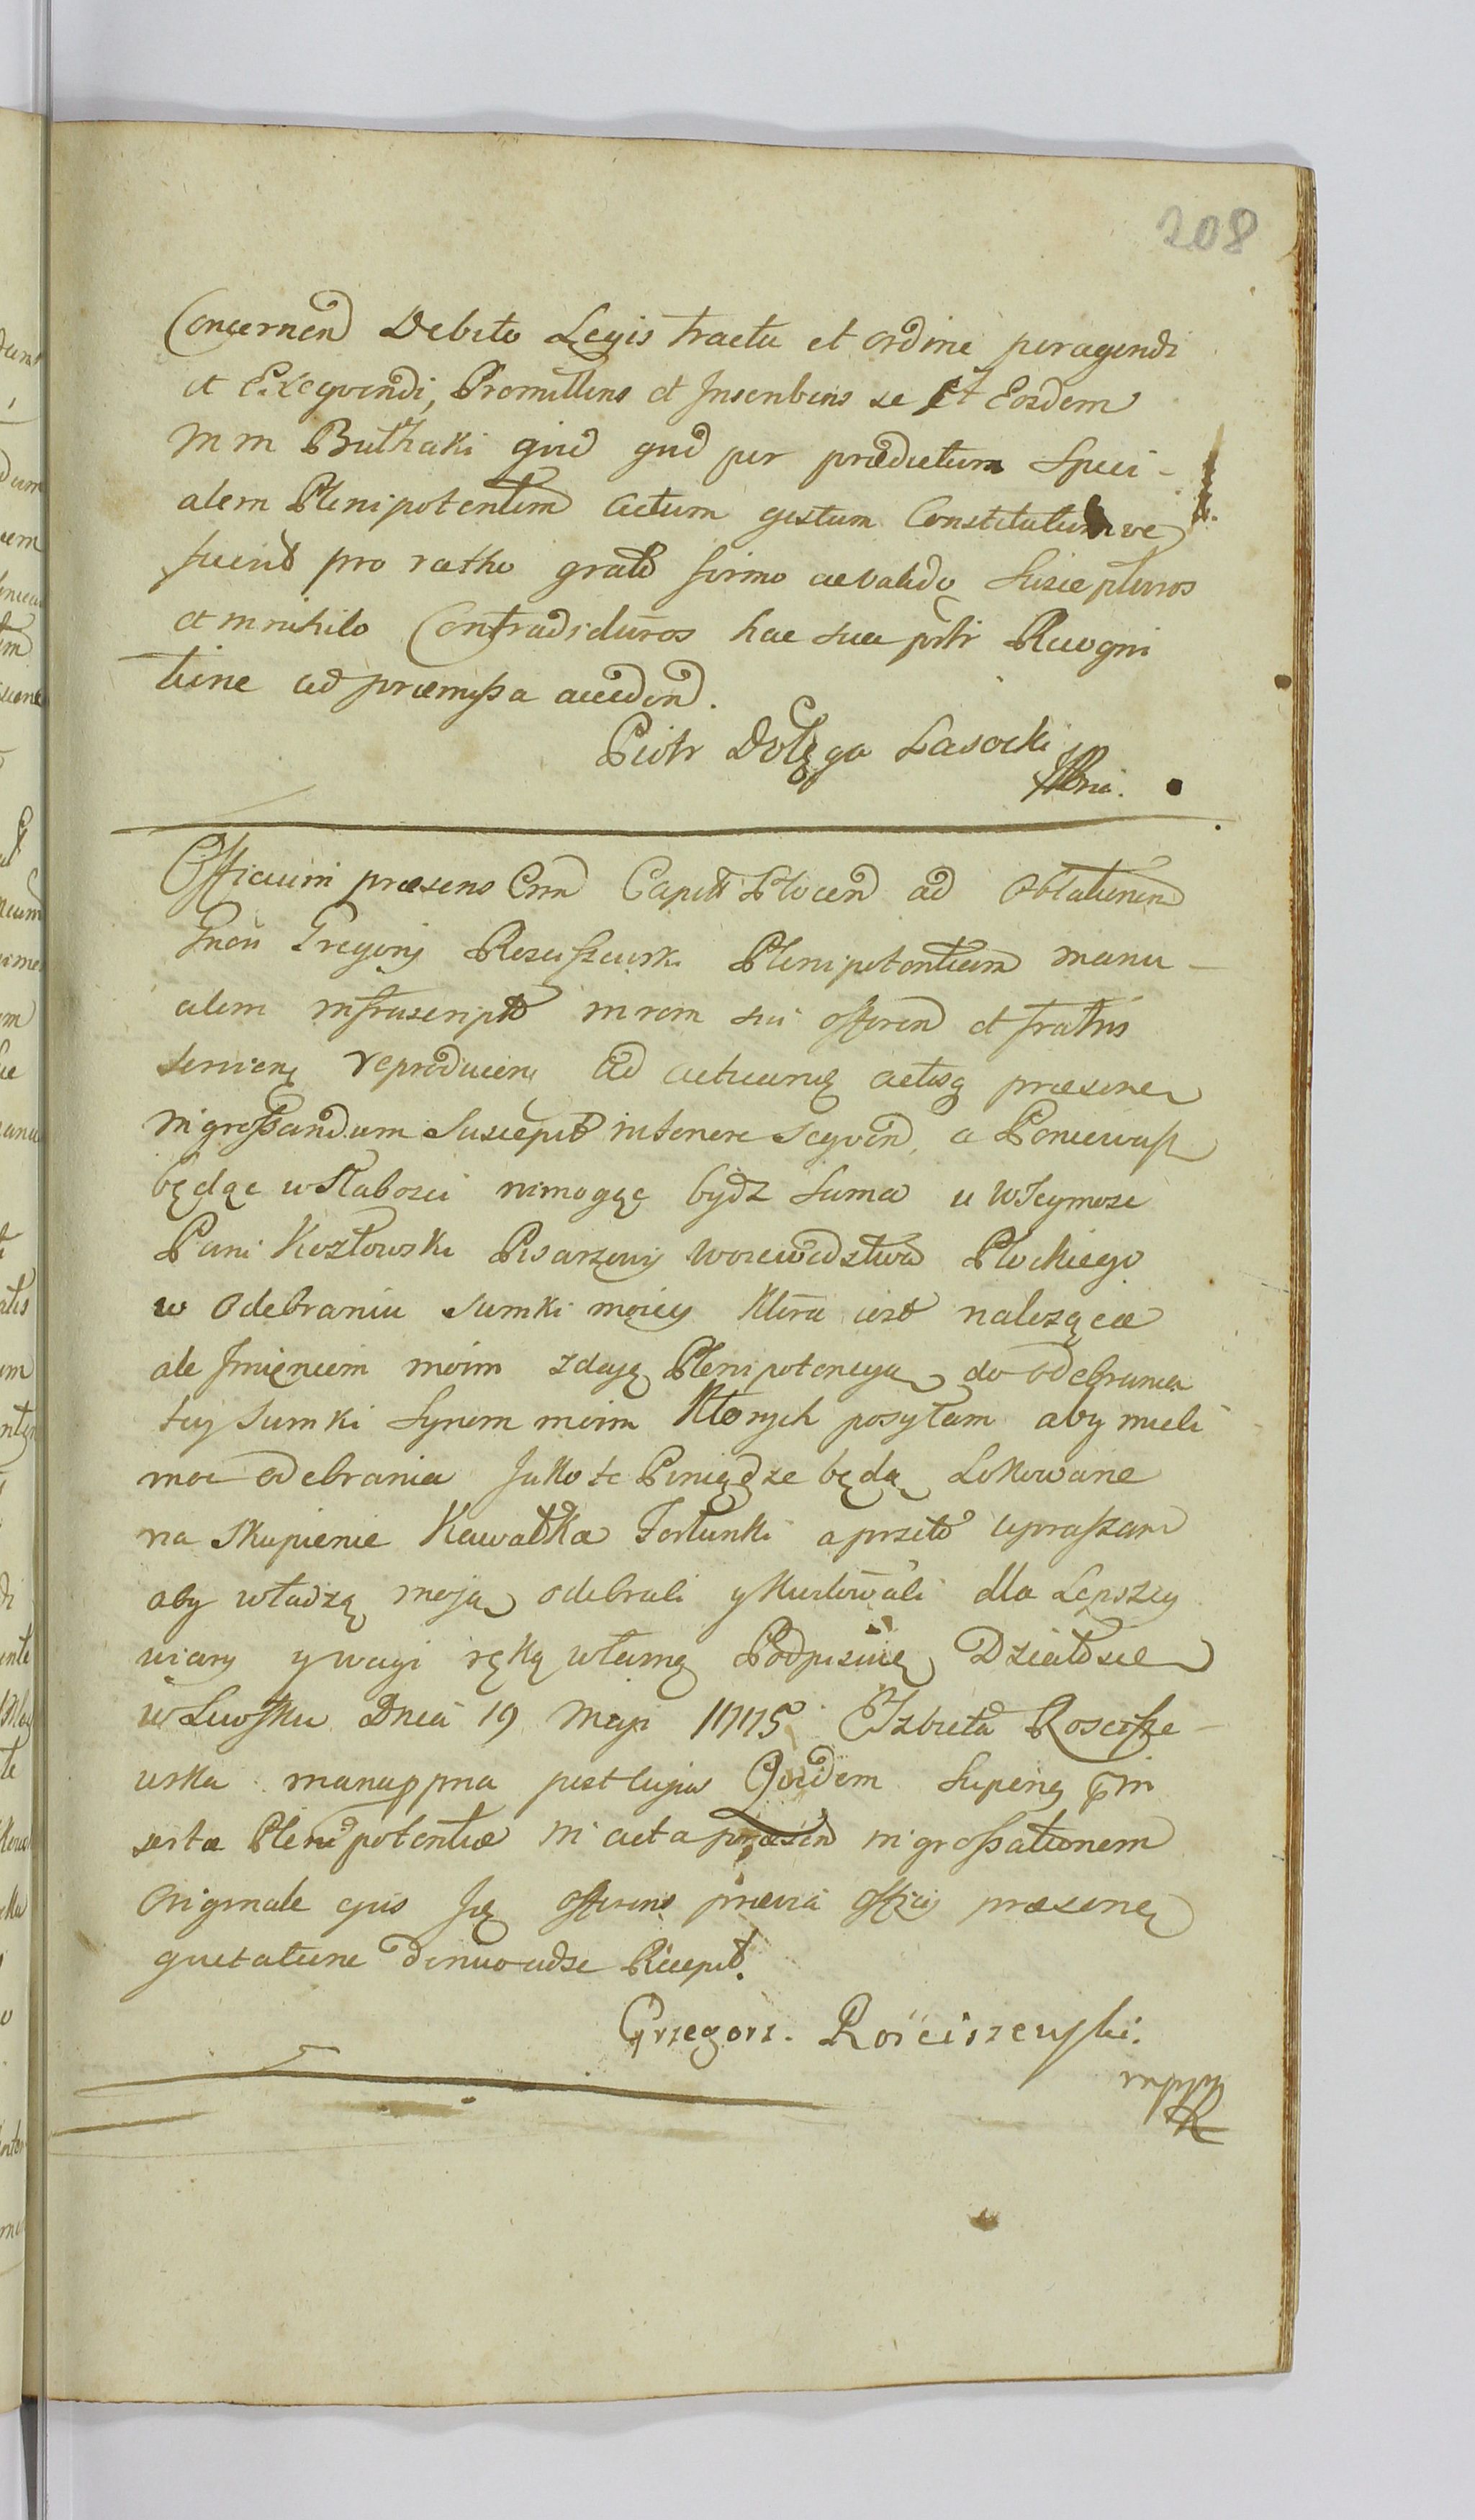 208
Concernend Debito Legis tractu et ordine peragendi
et Exeqvendi, Promittens et Inscribens se Et Eosdem
M m Buthaki qvid qvd per prædictum Speci-
alem Plenipotentem actum gestum Constitutumve
fuerit pro ratho grato firmo ac valido Suscepturos
et in nihilo Contradicturos hac sua pnti Recogni
tione ad præmissa acceden.
Piotr Dołęga Lasocki
Officium præsens Cnn Capitt Plocen ad Oblationem
Gnen Gregorij Plenipotentiam manu-
alem infrascripto offeren et fratris
reproducen Ad acticand actisq præsenc
ingrossandum Suscepit in tenore Seqvend, a Ponieważ
będąc w Słabości nimogąc bydz Sama u WJeymosc
Pani Kozłowski Pisarzowy Woiewodztwa Płockiego
w Odebraniu Sumki moiey Ktora iest nalezącą
ale Imięniem moim zdaję Plenipotencyą do odebrania
tey Sumki Synom moim Ktorych posyłam aby mieli
moc odebrania Jako te Piniądze będą Lokowane
na Skupienie Kawałka Fortunki a przeto upraszam
aby władzą moją odebrali y Kwitowali dla Lepszey
wiary y wagi ręką własną Podpisuię Działo sie
w Dnia 19 Maja 1775 Elzbieta Roscisze-
wska manu ppria post cujus Qvidem Superiq in
sertæ Plenipotentiæ in acta præsen ingrossationem
Originale ejus Idę offerens præviâ Officij præsenc
quietatione denuo ad se Recepit.
Grzegorz. Rościszewski.
mppp